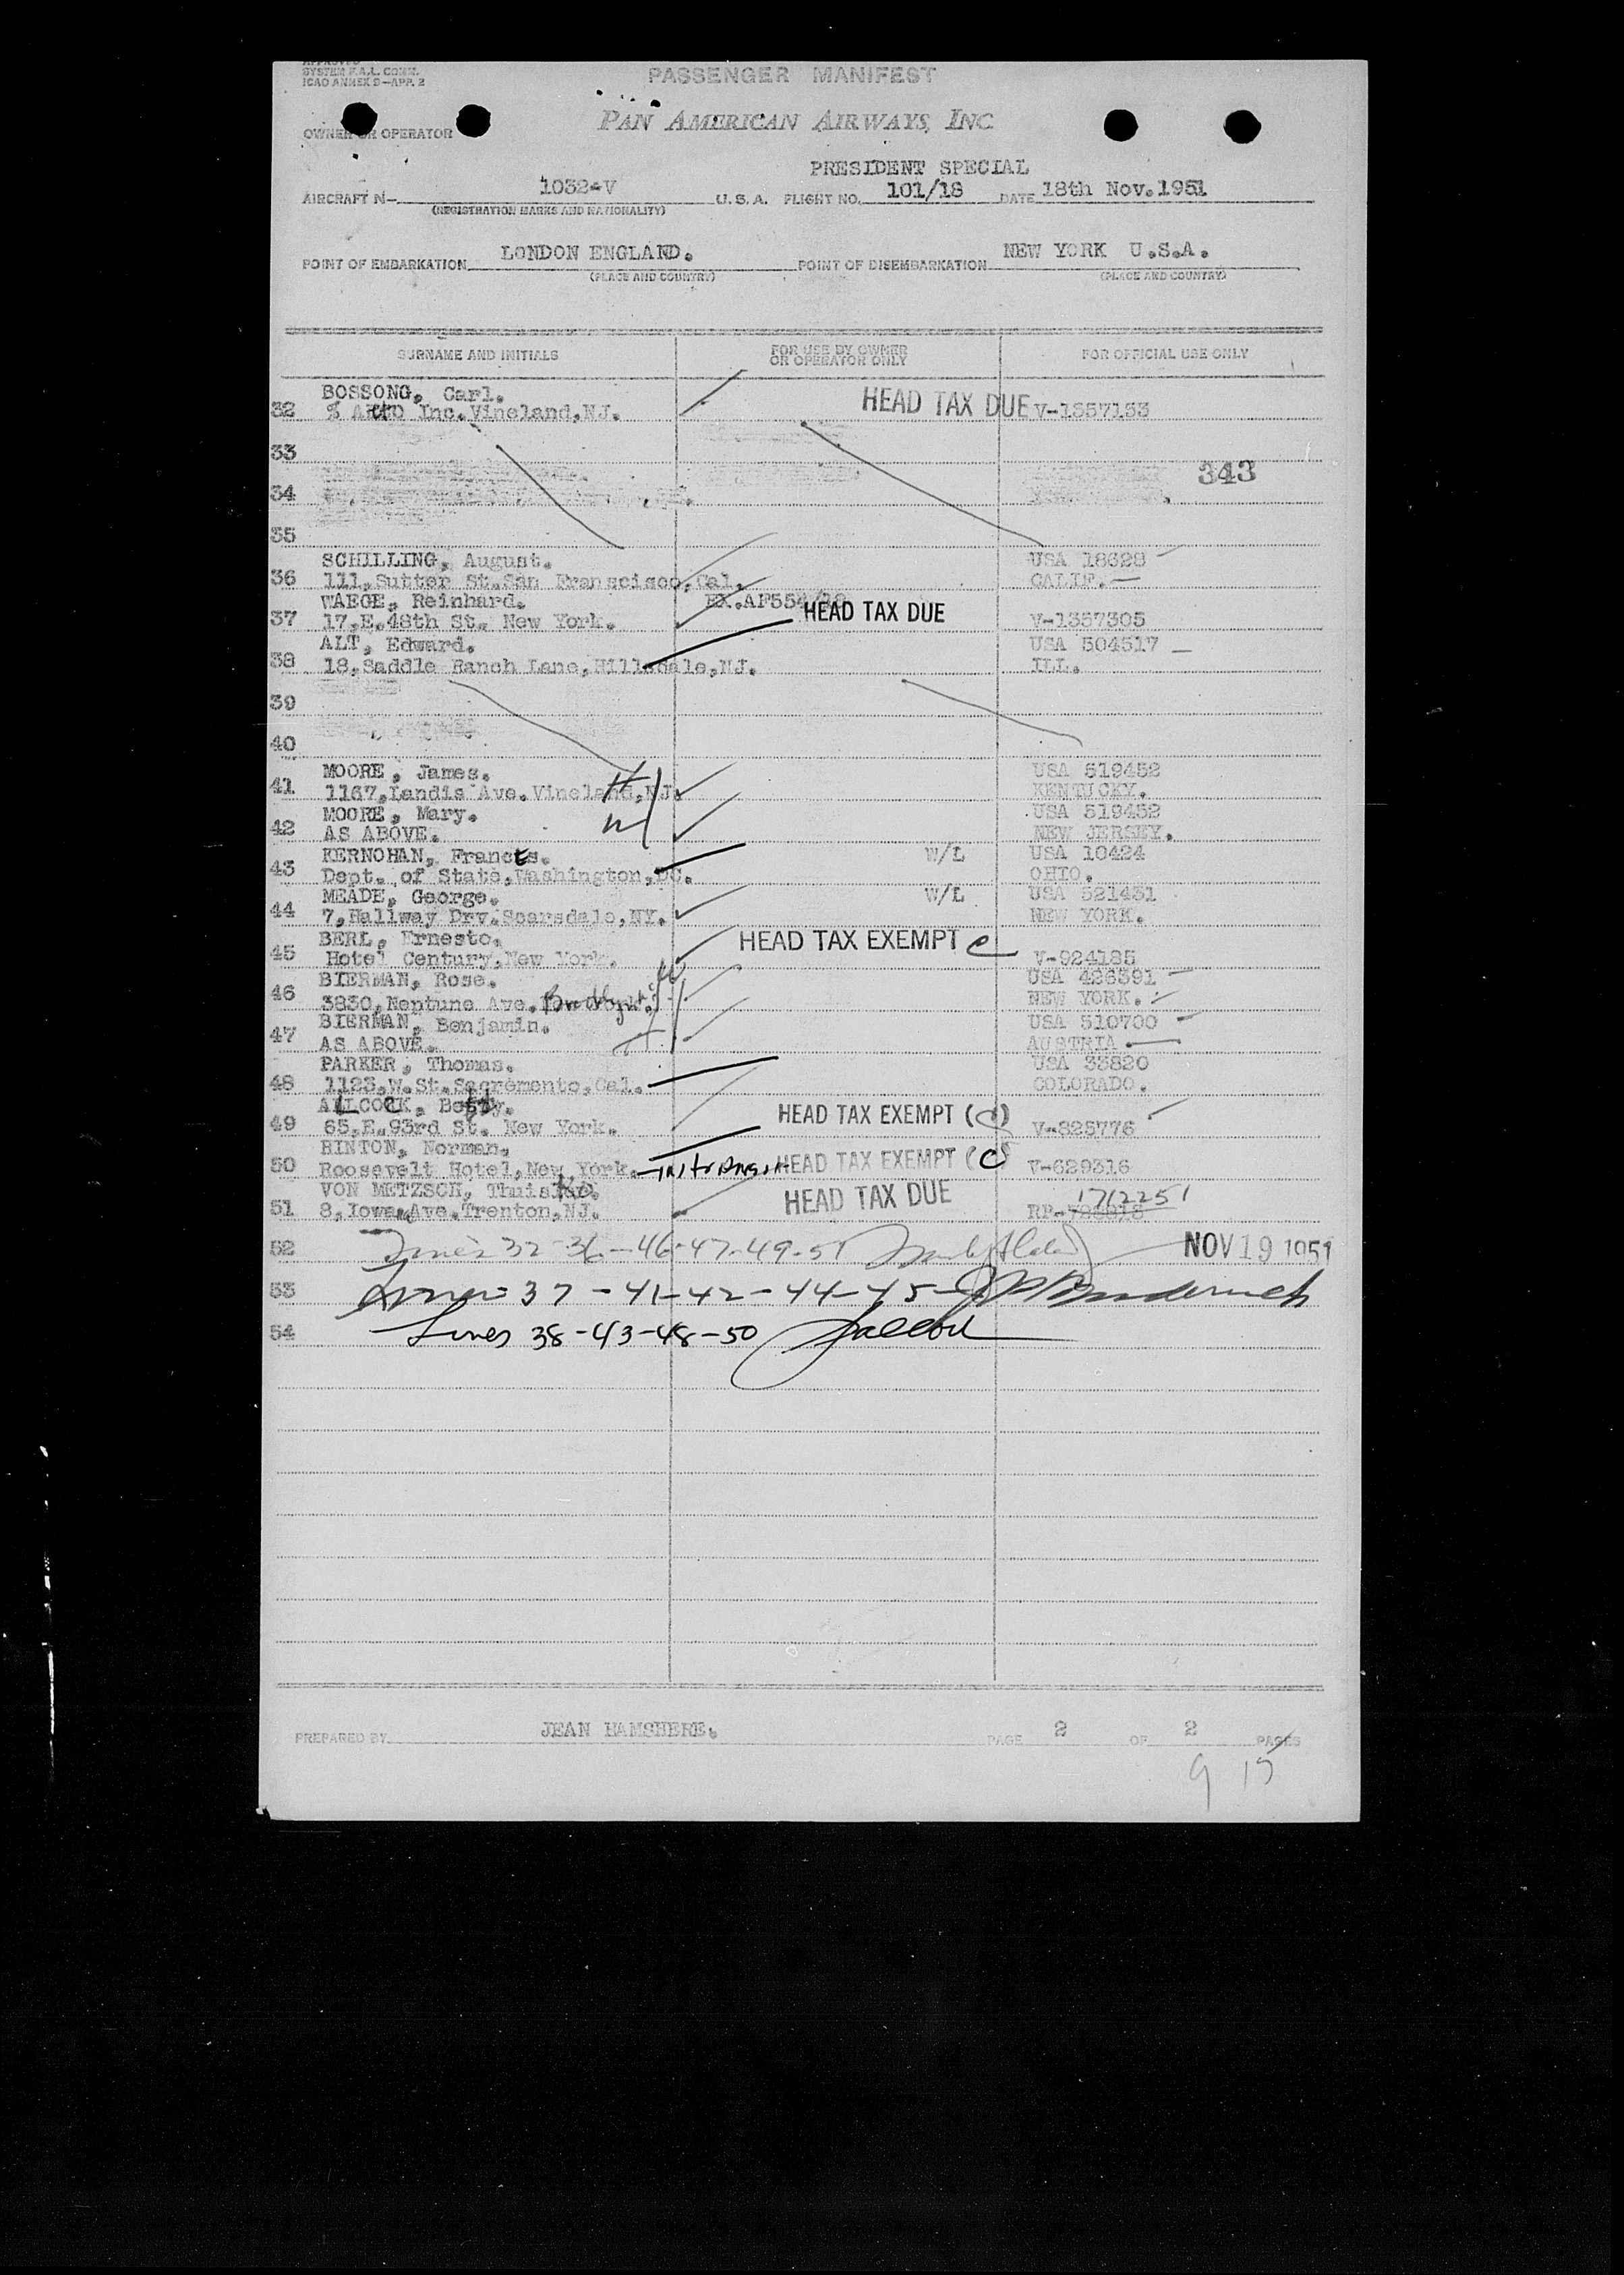 SYSTEM F.A.L. COMM.
ICAO ANNEX 9-APP. 2
PASSENGER MANIFEST
OWNER OR OPERATOR
PAN AMERICAN AIRWAYS, INC
PRESIDENT SPECIAL
AIRCRAFT N- 1032-V U.S.A. FLIGHT NO. 101/18 DATE 18th Nov.1951
(REGISTRATION MARKS AND NATIONALITY)
POINT OF EMBARKATION LONDON ENGLAND. POINT OF DISEMBARKATION NEW YORK U.S.A.
(PLACE AND COUNTRY) (PLACE AND COUNTRY)
SURNAME AND INITIALS FOR USE BY OWNER OR OPERATOR ONLY FOR OFFICIAL USE ONLY
BOSSONG, Carl.
32 % Inc.Vineland,NJ. HEAD TAX DUE V-1357133
33
343
34
35
SCHILLING, August. USA 18628
36 111,Sutter St.San Franscisco,Cal. CALIF.
WAEGE, Reinhard. EX.AF554/18
37 17,E.48th St. New York. HEAD TAX DUE V-1357305
ALT, Edward. USA 504517
38 18,Saddle Ranch Lane,Hillsdale,NJ. ILL.
39
40
MOORE, James. H USA 519452
41 1167,Landis Ave.Vineland,NJ. KENTUCKY.
MOORE, Mary. W USA 519452
42 AS ABOVE. NEW JERSEY.
KERNOHAN, Frances. W/L USA 10424
43 Dept. of State,Washington,DC. OHIO.
MEADE, George. W/L USA 521431
44 7,Hallway Drv.Scarsdale,NY. NEW YORK.
BERL, Ernesto. HEAD TAX EXEMPT C
45 Hotel Century,New York. V-924185
BIERMAN, Rose. W USA 426391
46 3830,Neptune Ave. Brooklyn NEW YORK.
BIERMAN, Benjamin. H USA 510700
47 AS ABOVE. AUSTRIA
PARKER, Thomas. USA 33820
48 1123,W.St.Sacremento,Cal. COLORADO.
ALCOCK, Betty. HEAD TAX EXEMPT (C)
49 65,E.93rd St. New York. V-825776
BINTON, Norman.
50 Roosevelt Hotel,New York. -in transit HEAD TAX EXEMPT (C) V-629316
VON METZSCH, HEAD TAX DUE 1712251
51 8,Iowa Ave.Trenton,NJ. RP-
52 Lines 32-36-46-47-49-51 NOV 19 1951
53 Lines 37-41-42-44-45-
54 Lines 38-43-48-50
PREPARED BY JEAN HAMSHERE. PAGE 2 OF 2 PAGES
9 15